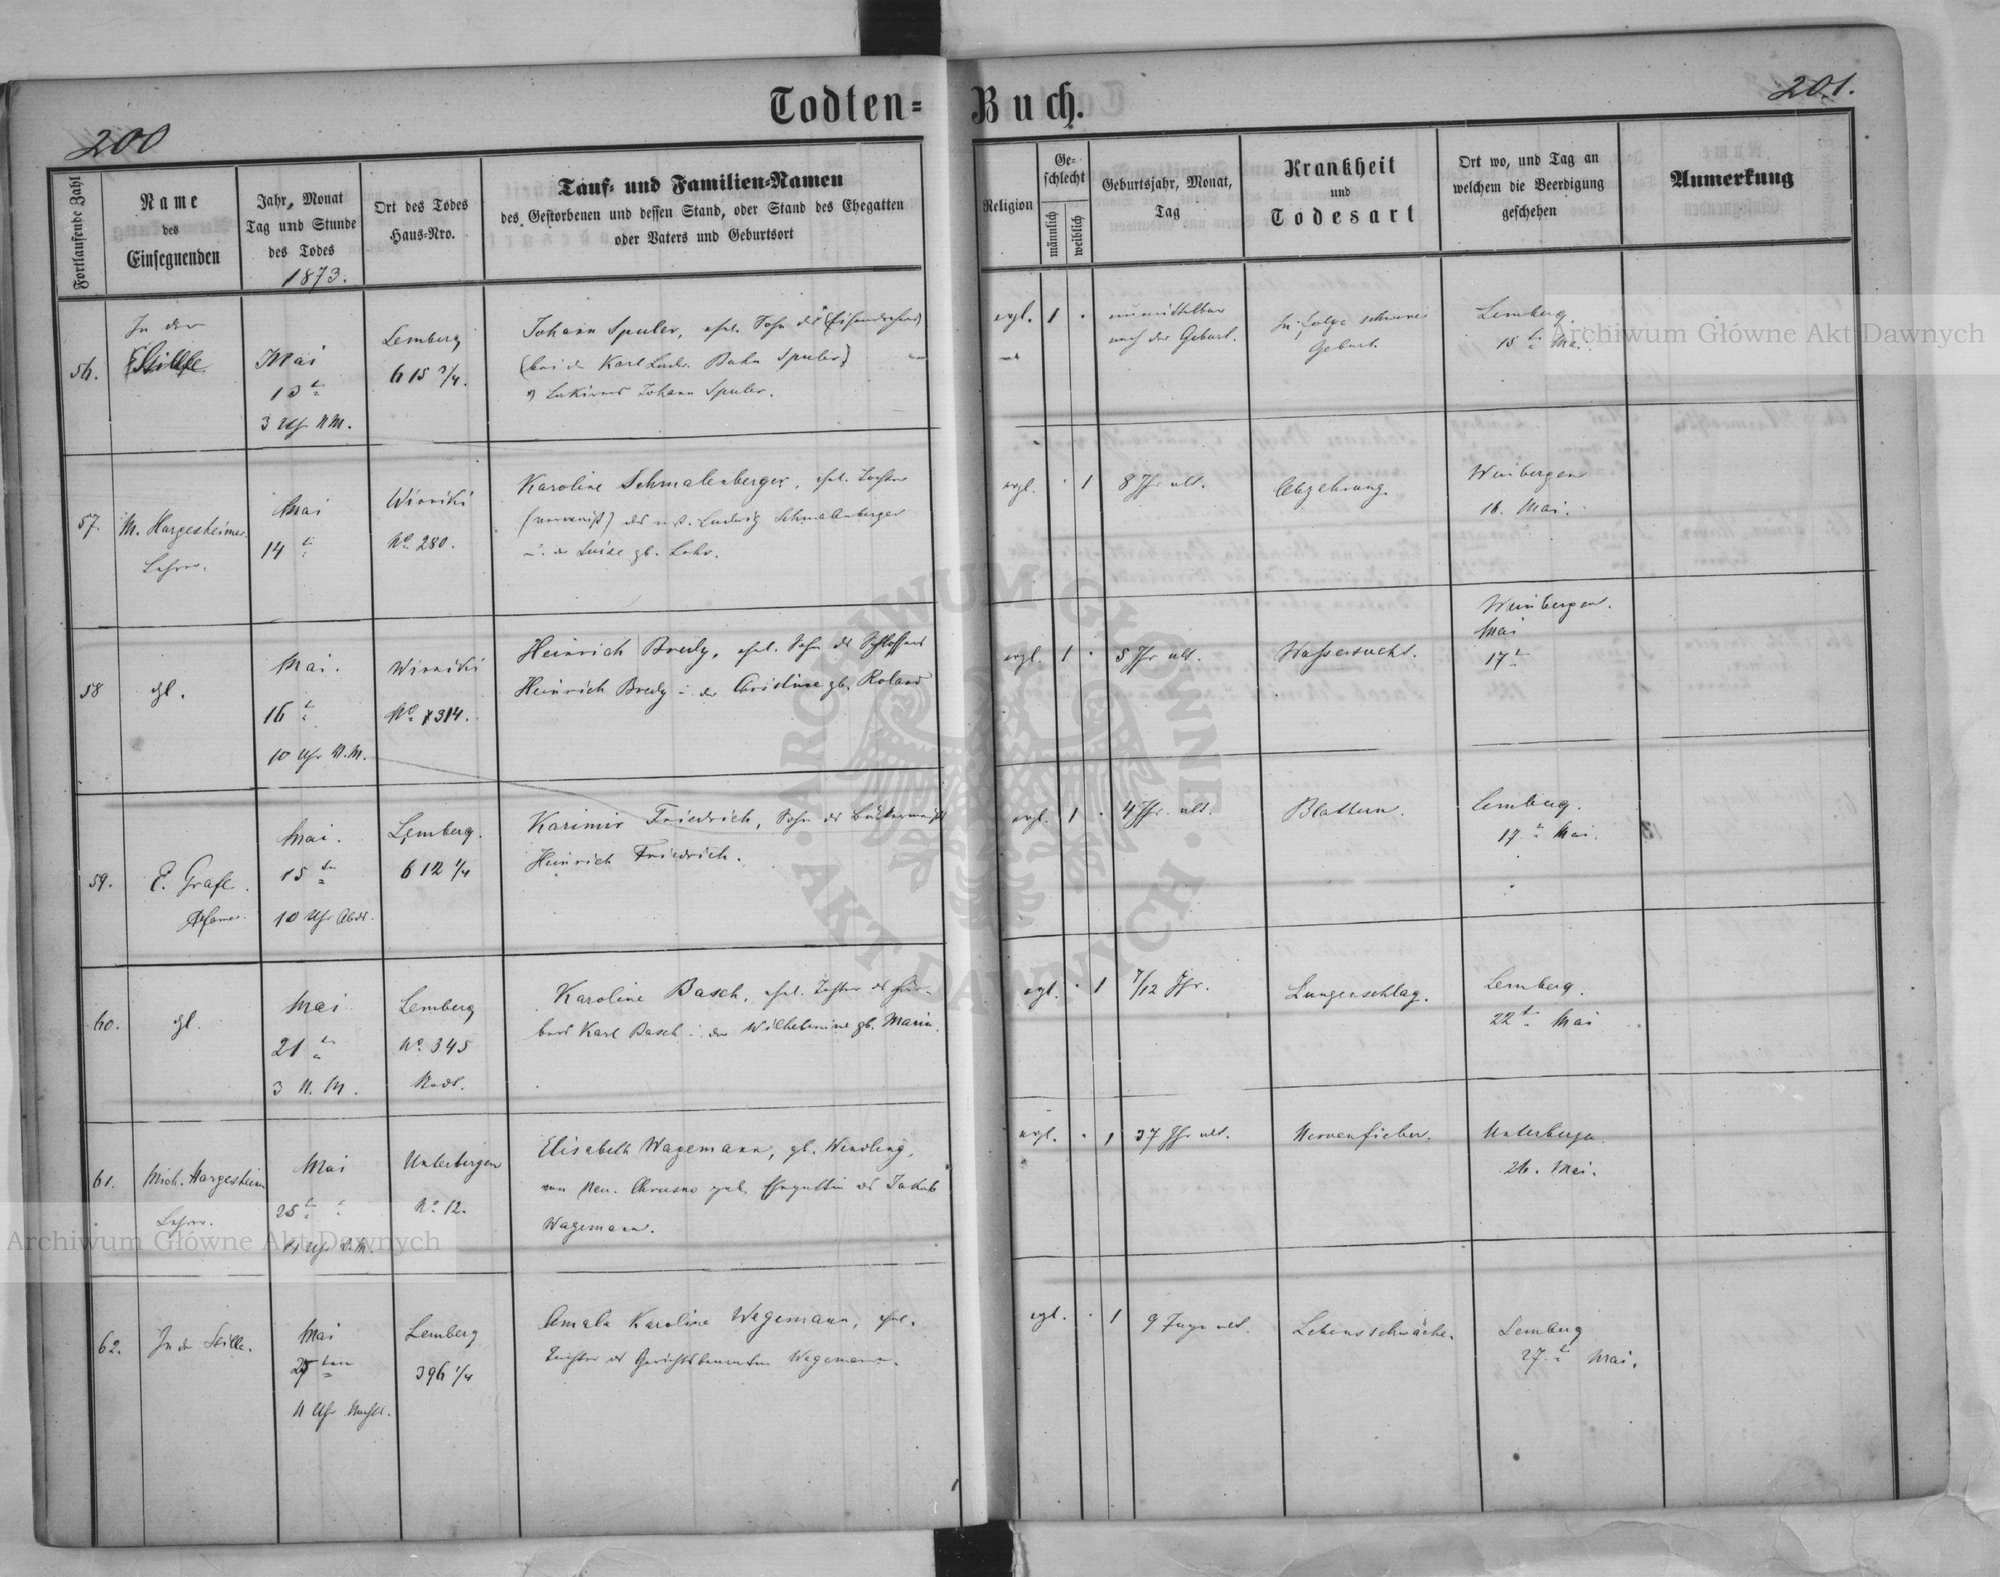 Todten-Buch.
200
201.
Fortlaufende Zahl
Name
des
Einsegnenden
Jahr, Monat
Tag und Stunde
des Todes
1873.
Ort des Todes
Haus-Nro.
Tauf- und Familien-Namen
des Gestorbenen und dessen Stand, oder Stand des Ehegatten
oder Vaters und Geburtsort
Religion
Ge-
schlecht
männlich
weiblich
Geburtsjahr, Monat,
Tag
Krankheit
und
Todesart
Ort wo, und Tag an
welchem die Beerdigung
geschehen
Anmerkung
56.
In der
Stille
Mai
3 Uhr N.M.
Lemberg
615 3/4.
Johann Spuler, ehel. Sohn des
(bei der Karl Ludw. Bahn Spuler)
Lakirers Johann Spuler.
evgl.
1
unmittelbar
nach der Geburt.
In Folge schwerer
Geburt.
Lemberg
15 t Mai.
57.
M. Hargesheimer
Lehrer.
Mai
14 t
Winniki
No. 280.
Karoline Schmalenberger, ehel. Tochter
des Ludwig Schmalenberger
u. der Luise gb. Lohr.
evgl.
1
8 Jhr alt.
Abzehrung.
Weinbergen
16. Mai.
58
gl.
Mai.
16 t
10 Uhr V.M.
Winniki
No. 314.
Heinrich Bredy, ehel. Sohn des Schlossers
Heinrich Bredy u. der Christine gb. Roland
evgl.
1
5 Jhr alt.
Wassersucht.
Weinbergen.
Mai
17 t
59.
E. Grafl.
Pfarrer.
Mai.
15 ten
10 Uhr Abds.
Lemberg.
612 1/4
Kasimir Friedrich, Sohn des Bäckermeist
Heinrich Friedrich.
evgl.
1
4 Jhr. alt.
Blattern.
Lemberg.
17. t Mai.
60.
gl.
Mai
21 t
3 N. M.
Lemberg
No. 345
Karoline Basch, ehel. Tochter des Fär-
bers Karl Basch u. der Wilhelmine gb. Marin.
evgl.
1
7/12 Jhr.
Lungenschlag.
Lemberg.
22 t Mai
61.
Mich. Hargesheim
Lehrer.
Mai
25 t
Unterbergen
No. 12.
Elisabeth Wagemann, gb. Wendling,
von Neu. Chrusno Ehegattin des Jakob
Wagemann.
evgl.
1
37 Jhr alt.
Nervenfieber.
Unterbergen
26. Mai.
62.
In der Stille.
Mai
11 Uhr Nachts.
Lemberg
396 1/4
Amala Karoline Wegemann, ehel.
Tochter des Gerichtsbeamten Wegemann.
evgl.
1
9 Tage alt.
Lebensschwäche.
Lemberg
27. t Mai.
Archiwum Główne Akt Dawnych
Archiwum Główne Akt Dawnych
ARCHIWUM GŁÓWNE AKT DAWNYCH